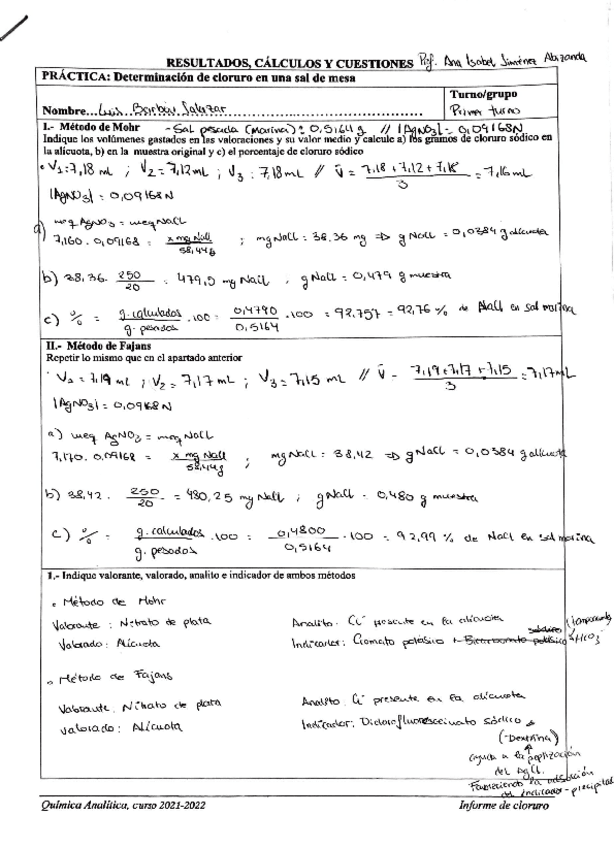 RESULTADOS, CÁLCULOS Y CUESTIONES Prof. Ana Isabel Jiménez Abizanda
PRÁCTICA: Determinación de cloruro en una sal de mesa
Turno/grupo
Nombre...Luis Barbón Salazar Primer turno
I.- Método de Mohr -Sal pesada (Marina): 0,5164 g // |AgNO3| = 0,09168N
Indique los volúmenes gastados en las valoraciones y su valor medio y calcule a) los gramos de cloruro sódico en
la alícuota, b) en la muestra original y c) el porcentaje de cloruro sódico
• V1=7,18 mL ; V2=7,12mL ; V3 : 7,18mL // V̄ = (7,18 + 7,12 + 7,18)/3 = 7,16 mL
|AgNO3| = 0,09168N
a) meq AgNO3 = meq NaCl
7,160 · 0,09168 = x mg NaCl / 58,44g ; mg NaCl = 38,36 mg => g NaCl = 0,0384 g alícuota
b) 38,36 · 250/20 = 479,5 mg NaCl ; g NaCl = 0,479 g muestra
c) % = g. calculados / g. pesados · 100 = 0,4790 / 0,5164 · 100 = 92,757 = 92,76 % de NaCl en sal marina
II.- Método de Fajans
Repetir lo mismo que en el apartado anterior
· V1 = 7,19 mL ; V2 = 7,17 mL ; V3 = 7,15 mL // V̄ = (7,19+7,17+7,15)/3 = 7,17mL
|AgNO3| = 0,09168N
a) meq AgNO3 = meq NaCl
7,170 · 0,09168 = x mg NaCl / 58,44g ; mg NaCl = 38,42 => g NaCl = 0,0384 g alícuota
b) 38,42 · 250/20 = 480,25 mg NaCl ; g NaCl = 0,480 g muestra
c) % = g. calculados / g. pesados · 100 = 0,4800 / 0,5164 · 100 = 92,99 % de NaCl en sal marina
1.- Indique valorante, valorado, analito e indicador de ambos métodos
• Método de Mohr
Valorante : Nitrato de plata Analito: Cl⁻ presente en la alícuota
Valorado: Alícuota Indicador: Cromato potásico + Bicarbonato potásico
HCO3⁻
• Método de Fajans
Valorante: Nitrato de plata Analito: Cl⁻ presente en la alícuota
Valorado: Alícuota Indicador: Diclorofluoresceinato sódico
(-Dextrina)
ayuda a la peptización
del AgCl.
Favoreciendo la adsorción
del indicador-precipitado
Química Analítica, curso 2021-2022 Informe de cloruro